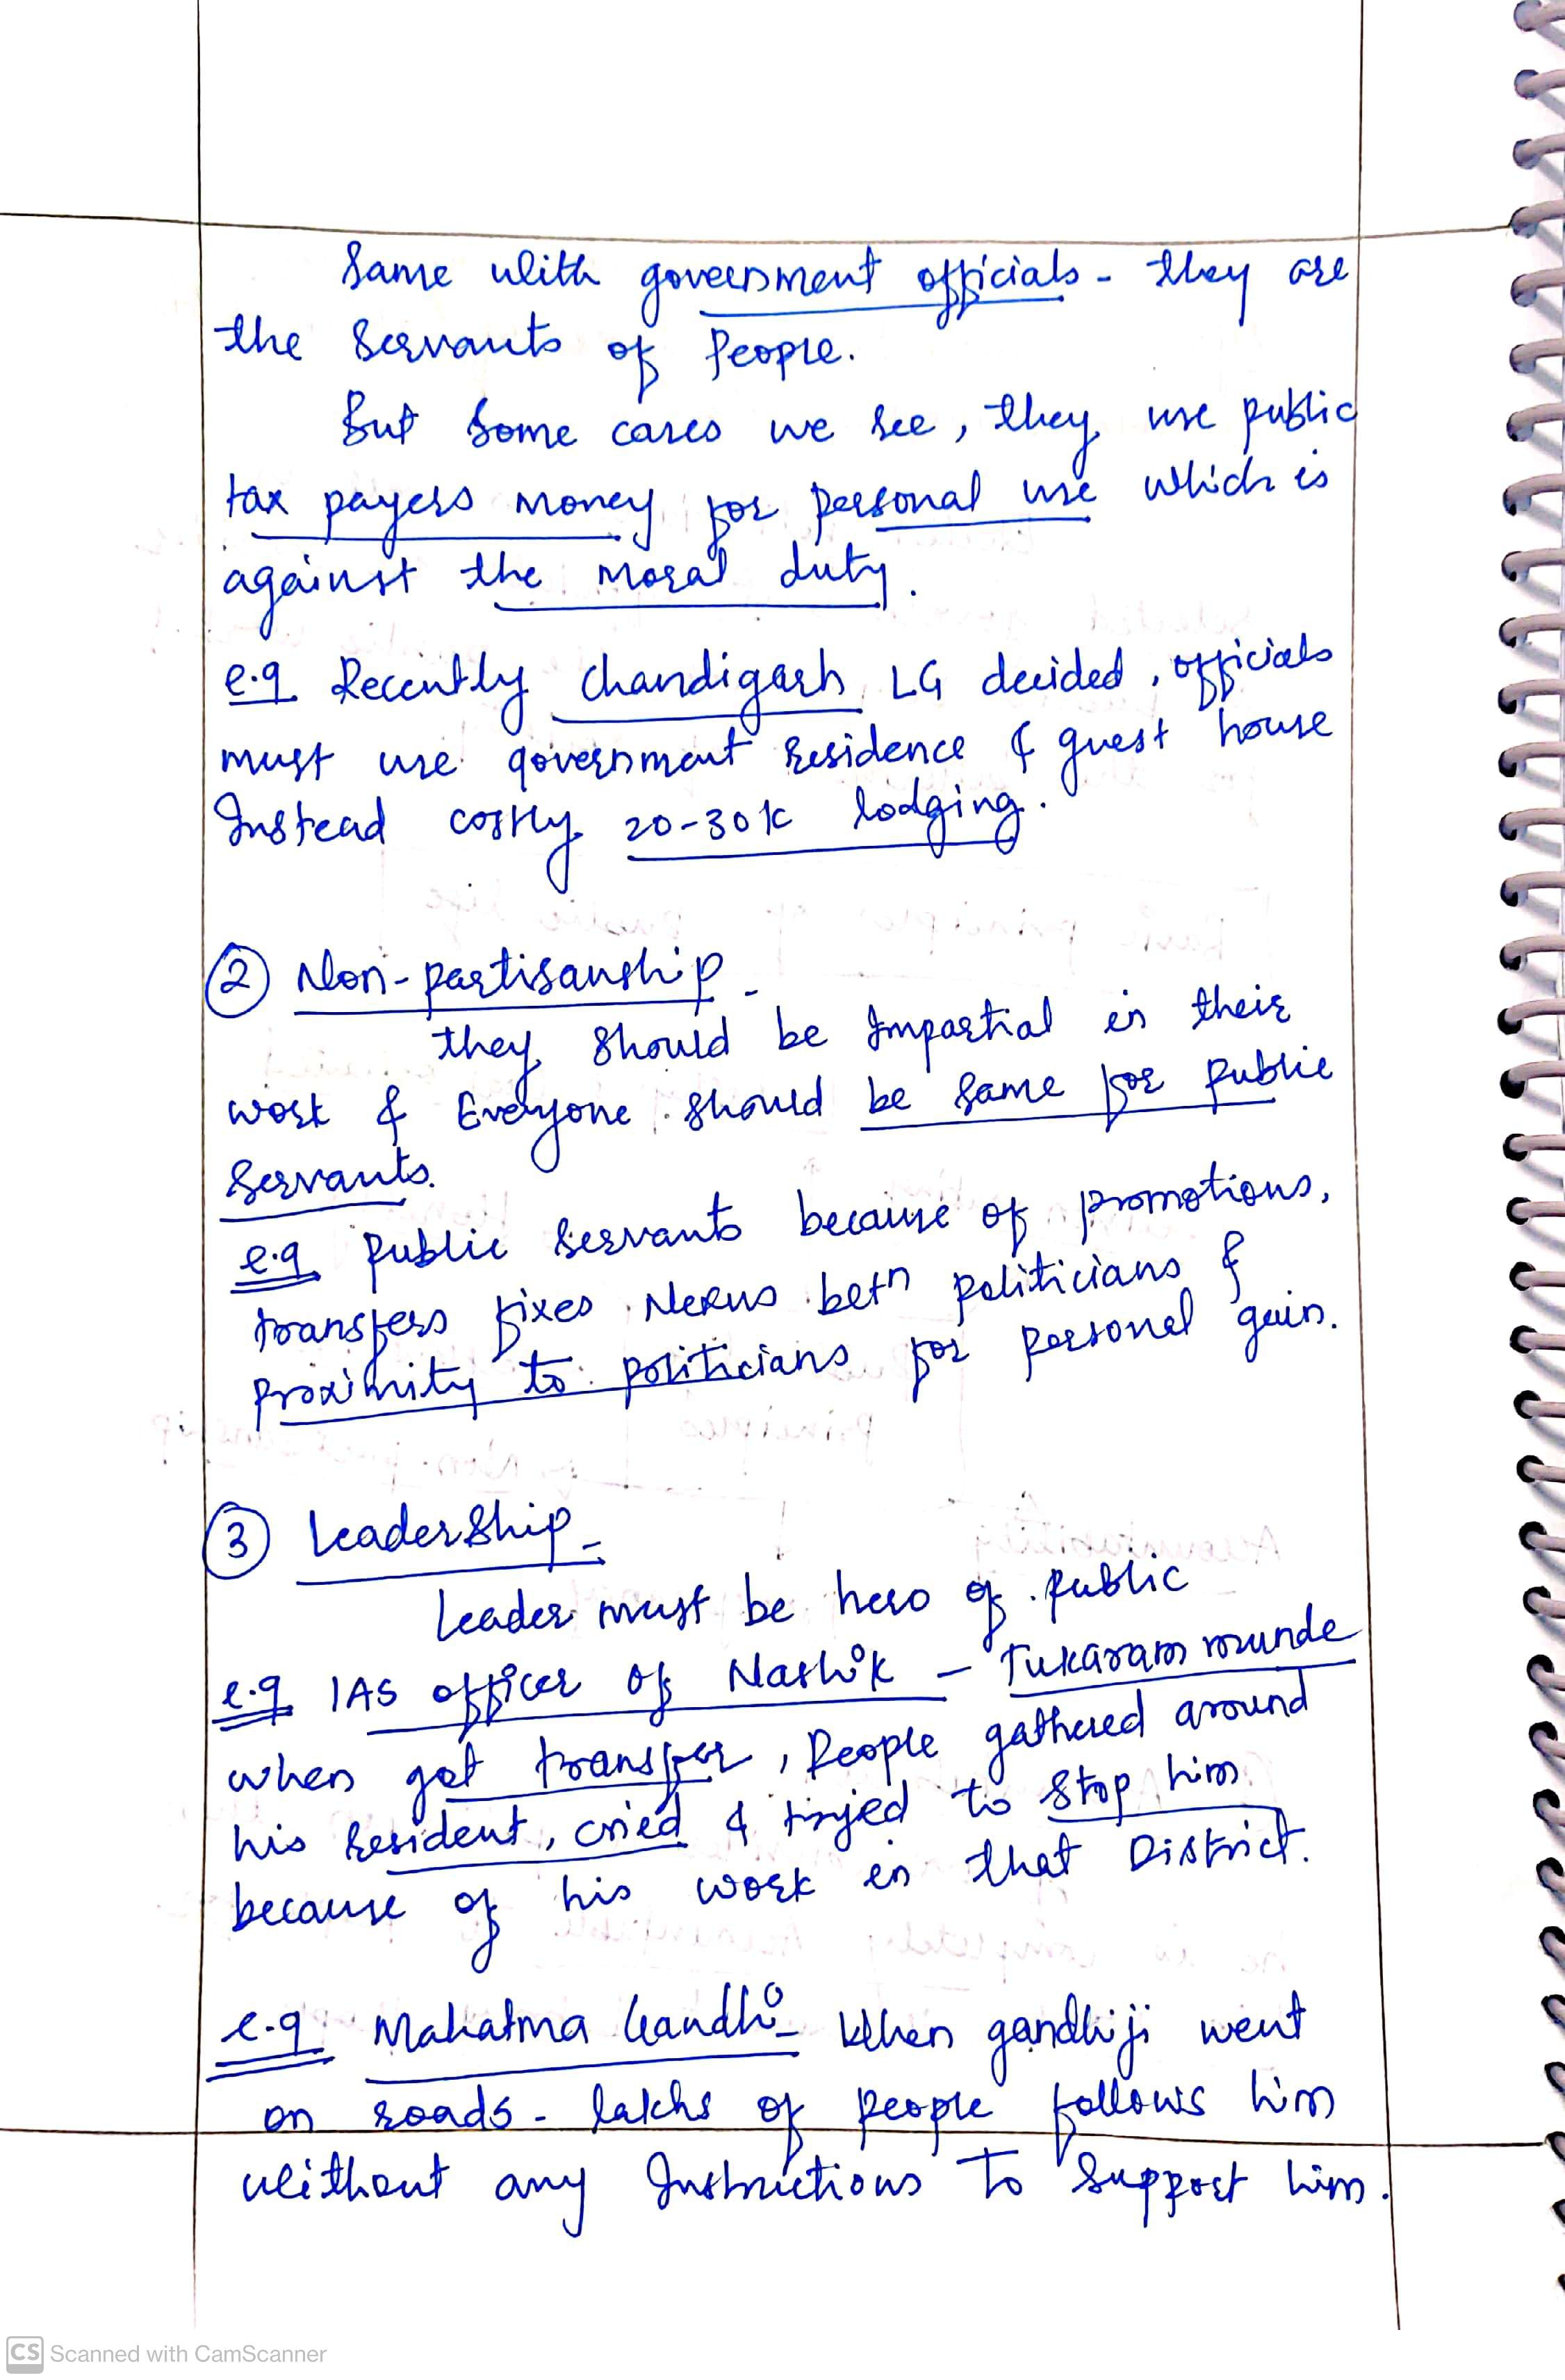 Same with government officials - they are
the servants of People.
But some cases we see, they use public
tax payers money for personal use which is
against the moral duty.
e.g. Recently Chandigarh LG decided, officials
must use government residence & guest house
Instead costly 20-30K lodging.
② Non-partisanship -
they should be Impartial in their
work & Everyone should be same for public
servants.
e.g. Public servants because of promotions,
transfers fixes Nexus betn politicians &
proximity to politicians for personel gain.
③ Leadership -
Leader must be hero of public
e.g. IAS officer of Nashik - Tukaram munde
when got transfer, People gathered around
his resident, cried & tryied to stop him
because of his work in that District.
e.g. Mahatma Gandhi - When gandhiji went
on roads - lakhs of people follows him
without any Instructions to support him.
CS Scanned with CamScanner